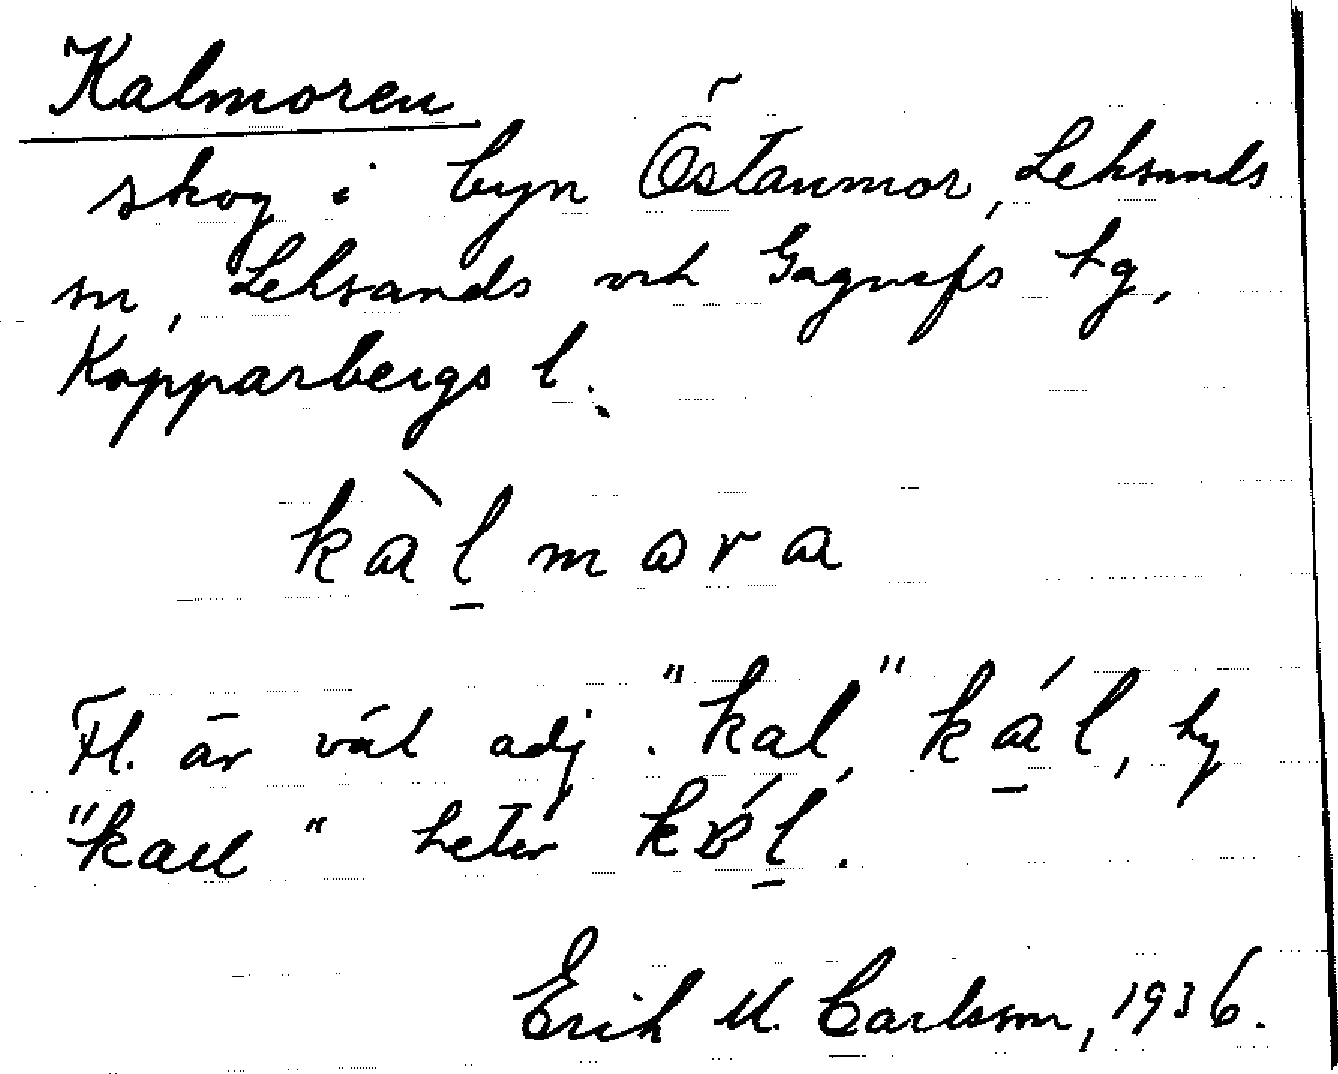 Kalmoren
skog i byn Östanmor, Leksands
sn, Leksands och Gagnefs tg,
Kopparbergs l.
kàl̲mora
Fl. är väl adj. "kal" ká̲l, ty
"karl" heter kɒ́l̲.
Erik M. Carlsson, 1936.